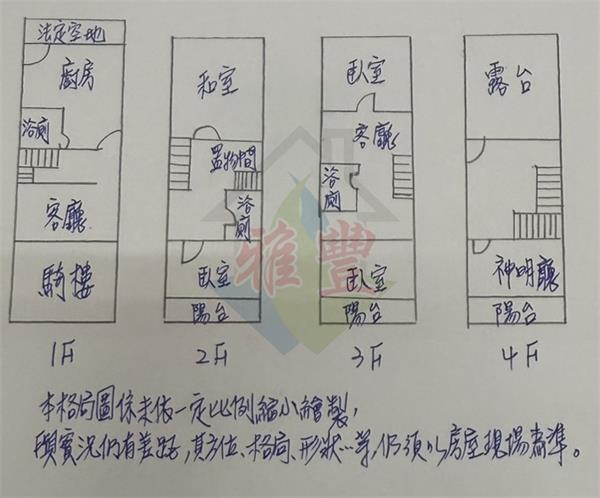 法定空地
廚房
浴廁
客廳
騎樓
1F
和室
置物間
浴廁
臥室
陽台
2F
臥室
客廳
浴廁
臥室
陽台
3F
露台
神明廳
陽台
4F
雅豐
本格局圖係未依一定比例縮小繪製,
與實況仍有差距,其方位、格局、形狀…等,仍須以房屋現場為準。